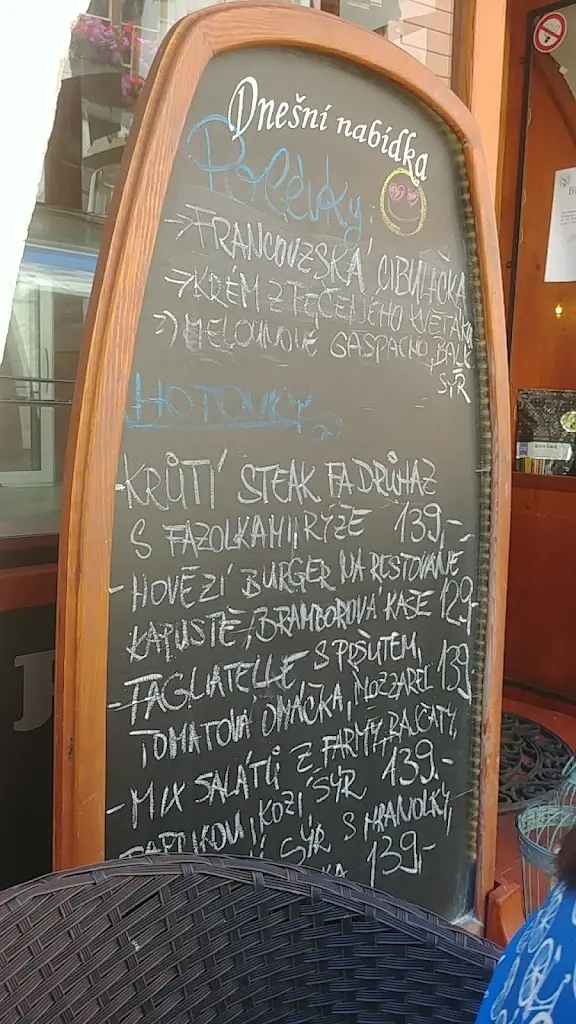 Dnešní nabídka
Polévky:
→ FRANCOUZSKÁ CIBULAČKA
→ KRÉM Z PEČENÉHO KVĚTÁKU
→ MELOUNOVÉ GASPACHO, BALK
SÝR
HOTOVKY
- KRŮTÍ STEAK FA DRŮHÁZ
S FAZOLKAMI, RÝŽE 139,-
- HOVĚZÍ BURGER NA RESTOVANÉ
KAPUSTĚ, BRAMBOROVÁ KAŠE 129,-
- TAGLIATELLE S PRŠUTEM,
TOMATOVÁ OMÁČKA, MOZZAREL 139,-
- MIX SALÁTŮ Z FARMY, RAJČATY,
PAPRIKOU, KOZÍ SÝR 139.-
SÝR S HRANOLKY,
139,-